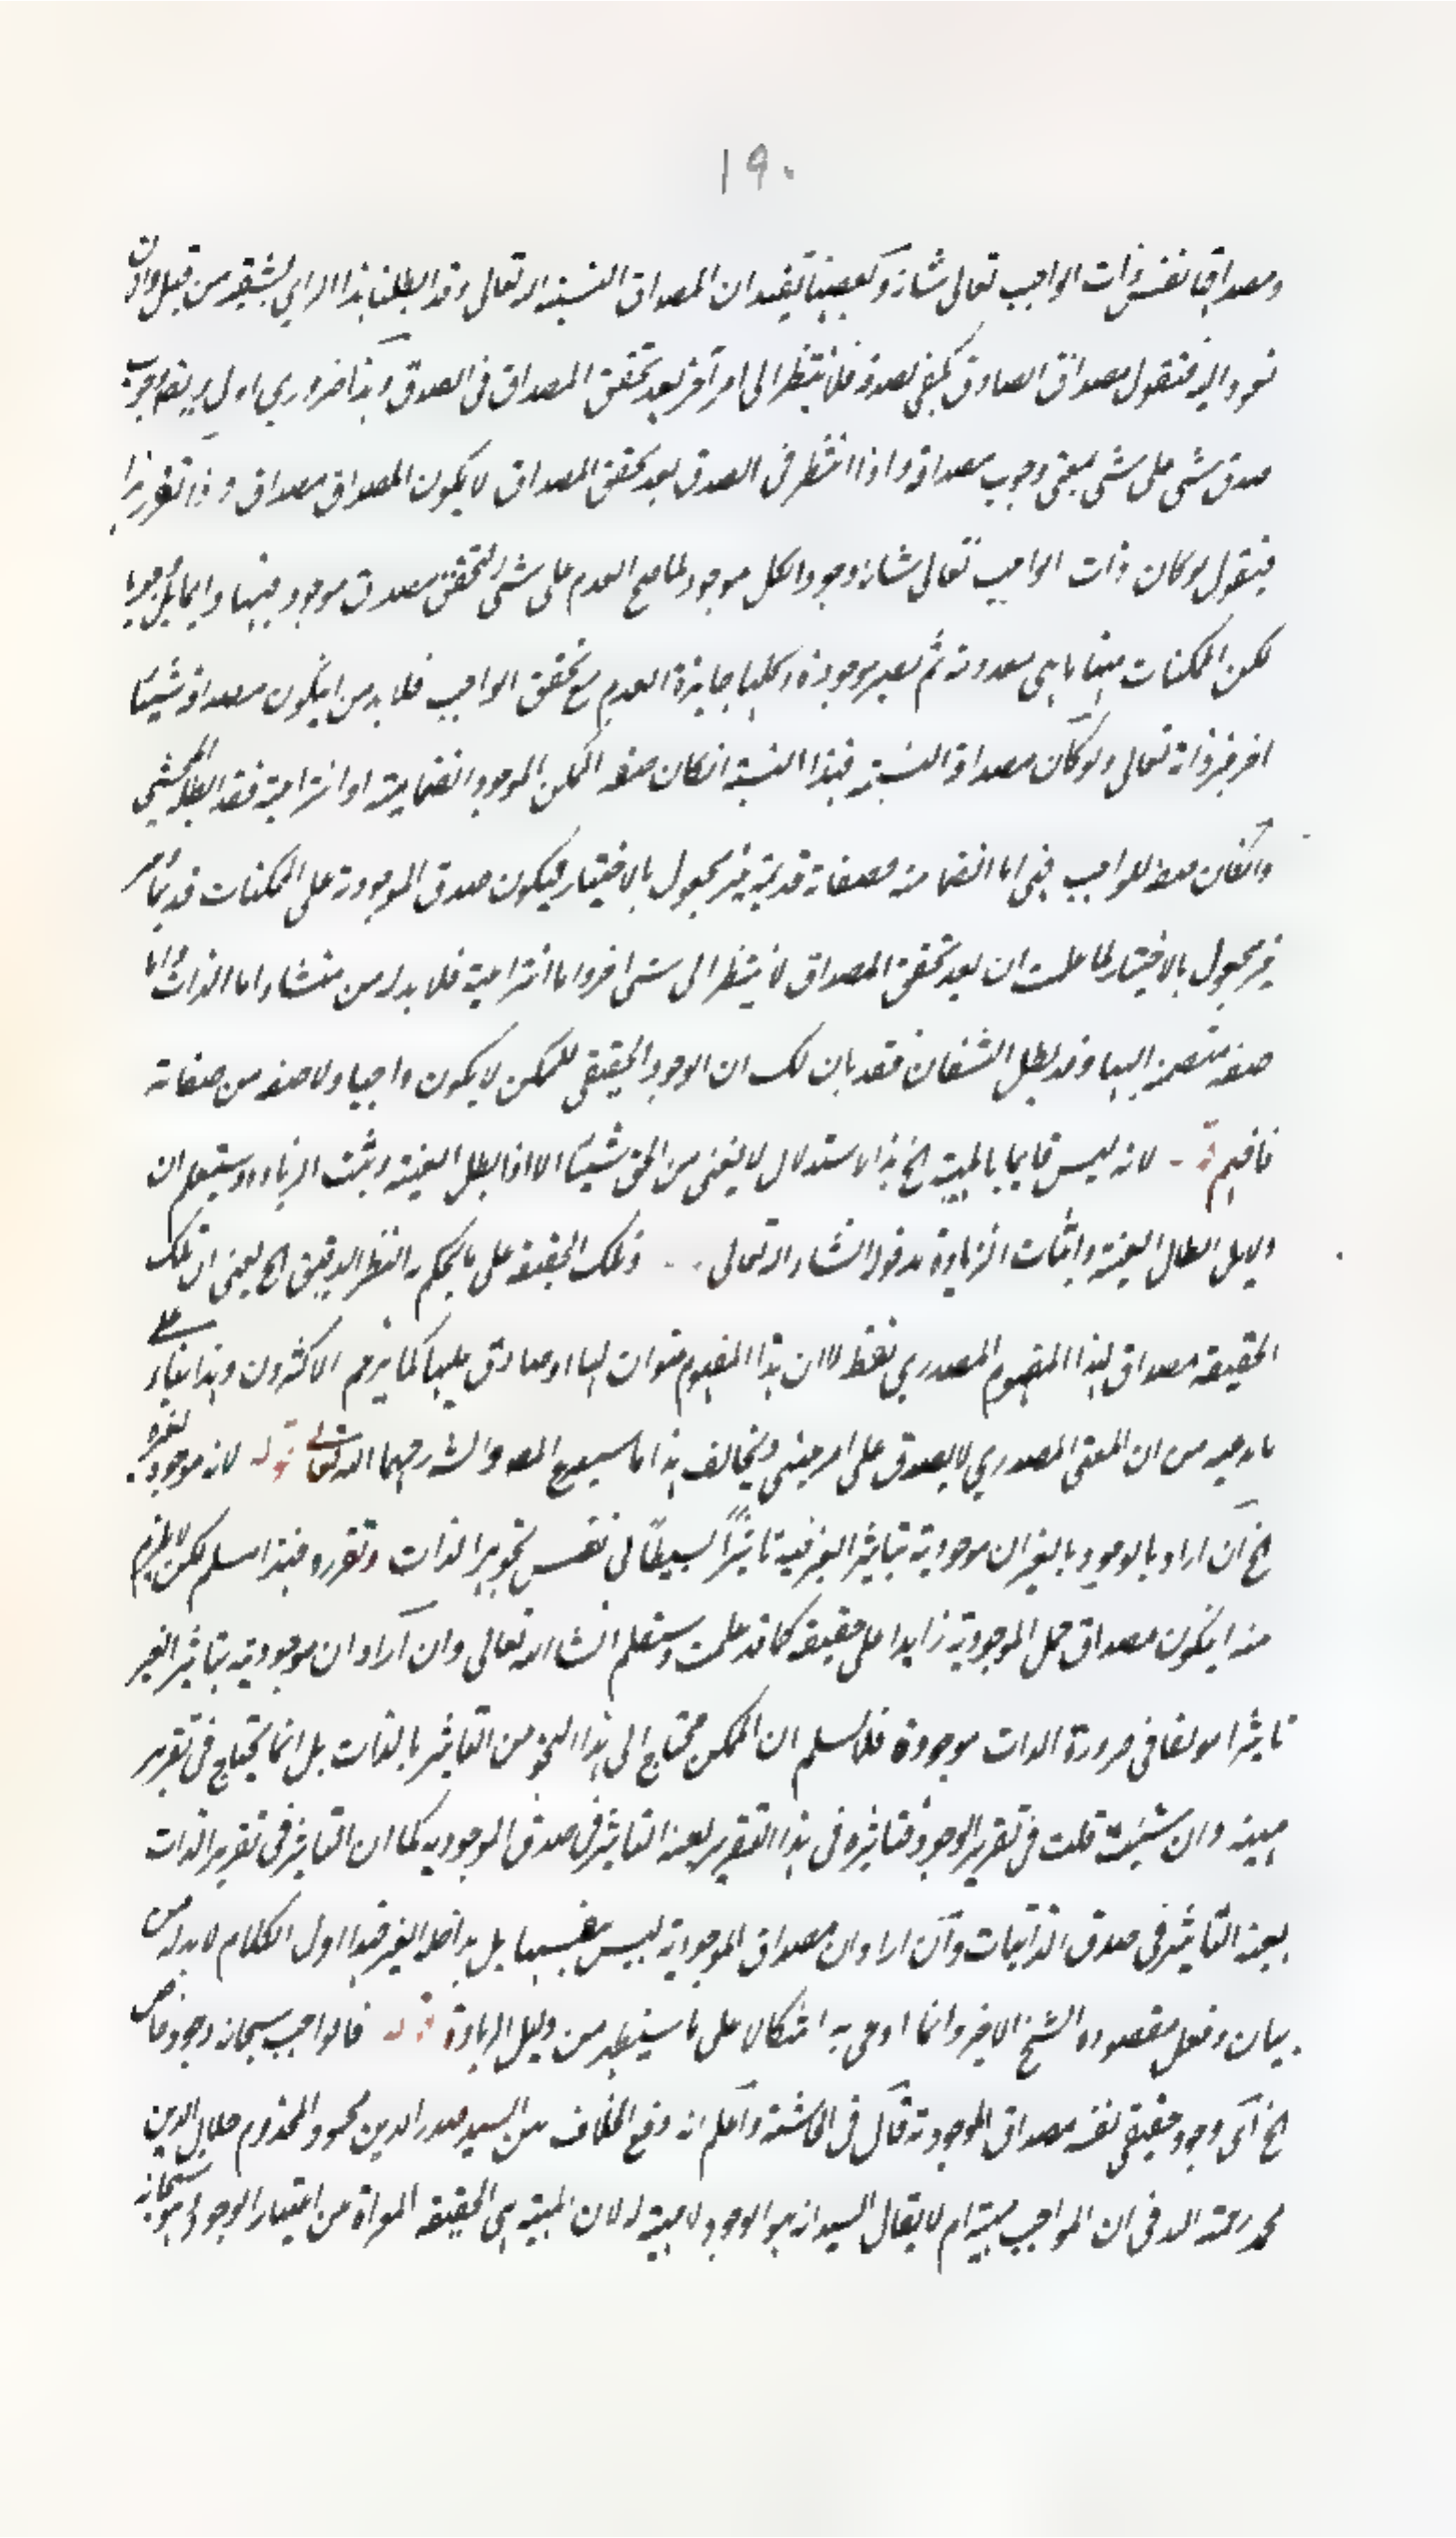 ١٩٠
ومصداقها نفس ذات الواجب تعالى شانه وكعصبنا يفيد ان المصداق النسبة اليه تعالى وقد ابطلنا هذا الراي بشقيه من قبل وان
نعود اليه فنقول مصداق الصادق يكفي لصدقه فلا ينتظر الى امر آخر بعد تحقق المصداق في الصدق وهذا ضروري اولي
صدق شي على شي بمعنى وجوب مصداقه واذا انتظر في الصدق بعد تحقق المصداق لا يكون المصداق مصداق واذا تقرر هذا
فيقول لو كان ذات الواجب تعالى شانه وجودا لكل موجود لما صح العدم على شي لتحقق مصدق موجود
لكن الممكنات معدومة ثم يصير موجودة وكلها جايزة العدم مع تحقق الواجب فلا بد من ان يكون مصداقه شيئا
اخر غير ذاته تعالى ولو كان مصداقه النسبة فهذا النسبة ان كان صفة الممكن الموجود انضمامية او انتزاعية فقد ابطله المحشي
وان كان صفة للواجب فهي اما انضمامية فصفاته قديمة غير مجعول بالاختيار فيكون صدق الموجودية على الممكنات قديما
غير مجعول بالاختيار لما علمت ان بعد تحقق المصداق لا ينتظر الى شي اخر واما انتزاعية فلا بد له من منشاء اما الذات واما
صفة منضمة اليها وقد بطل الشقان فقد بان لك ان الوجود الحقيقي للممكن لا يكون واجبا ولا صفة من صفاته
فافهم قوله لانه ليس قايما بالمهية الخ هذا الاستدلال لا يغني من الحق شيئا الا اذا بطل العينية وثبت الزيادة وستعلم ان
دليل ابطال العينية واثبات الزيادة مدفول انشاء الله تعالى وتلك الحقيقة على ما يحكم به النظر الدقيق الخ يعني ان تلك
الحقيقة مصداق لهذا المفهوم المصدري فقط لا ان هذا المفهوم عنوان لها او صادق عليها كما يزعم الاكثرون وهذا بناء على
ما يدعيه من ان المعنى المصدري لا يصدق على امر عيني ويخالف هذا ما سيصرح المص والشه رحمهما الله تعالى قوله لانه موجود بغيره
الخ ان اراد بالوجود بالغير ان موجوديته بتاثير الغير فيه تاثيرا بسيطا في نفس تجوهر الذات وتقرره فهذا مسلم لكن لا يلزم
منه ان يكون مصداق حمل الموجودية زايدا على حقيقة كما قد علمت وستعلم انشاء الله تعالى وان اراد ان موجوديته بتاثير الغير
تاثيرا مولفا في صرورة الذات موجودة فلا نسلم ان الممكن محتاج الى هذا النحو من التاثير بالذات بل انما يحتاج في تقرير
مهيته وان شئت قلت في تقرير الوجود فتاثيره في هذا التقرير بعينه التاثير في صدق الموجودية كما ان التاثير في تقرير الذات
بعينه التاثير في صدق الذاتيات وان اراد ان مصداق الموجودية ليس نفسها بل بداخله الغير فهذا اول الكلام لا بد له من
بيان ولعل مقصوده الشق الاخير وانما اوهى به اتكالا على ما سيظهر من دليل الزيادة قوله فالواجب سبحانه وجود خاص
الخ اي وجود حقيقي نفسه مصداق الموجودية قال في الحاشية واعلم انه وقع الخلاف بين السيد صدر الدين محمد والمخدوم جلال الدين
محمد رحمة الله في ان الواجب مهية ام لا يقال السيد انه هو الوجود لا مهية له لان المهية هي الحقيقة المعراة عن اعتبار الوجود وهو سبحانه